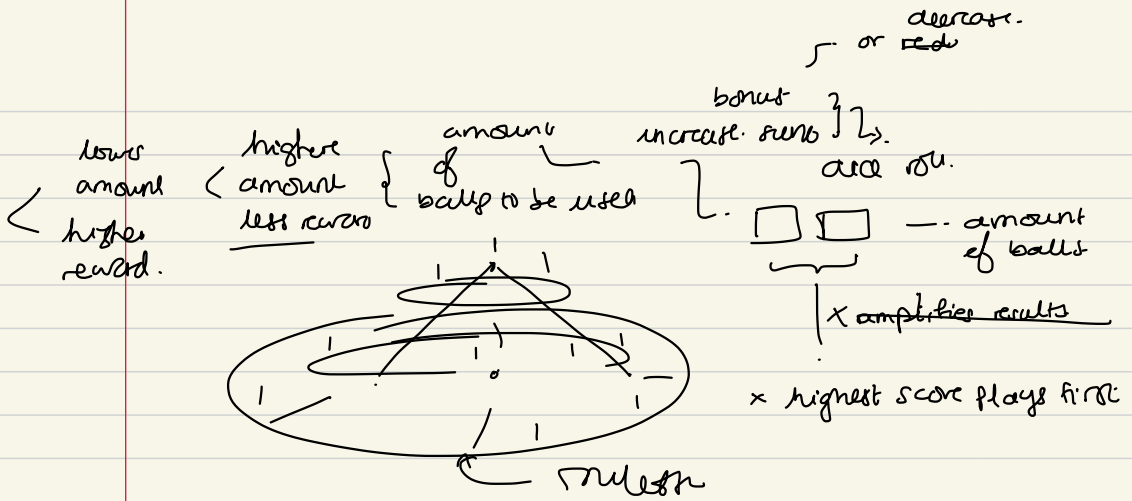 decrease.
or redu
bonus
increase.
dice roll.
lower
amount
higher
reward.
highere
amount
less reward
amount
of
balls to be used
amount
of balls
x amplifies results
x highest score plays first